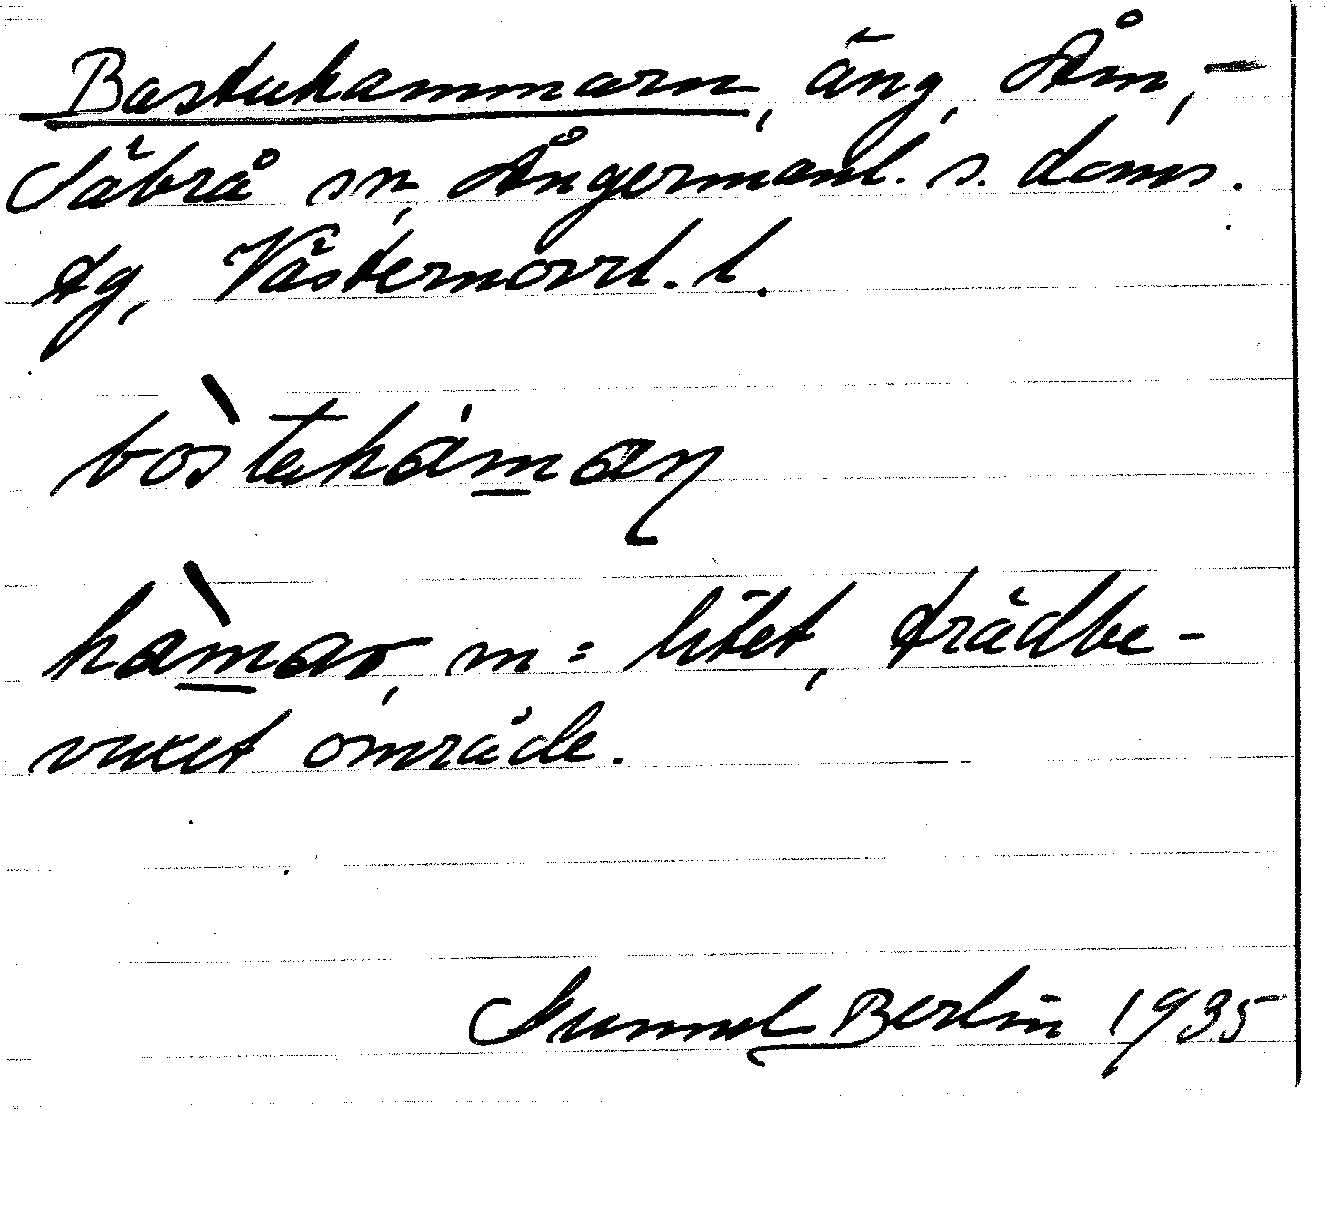 Bastuhammarn, äng, Åm, -
Säbrå sn, Ångermanl. s. doms.
tg, Västernorrl. l.
bòstehámaɳ
hàmar, m = litet, trädbe-
vuxet område.
Gunnel Berlin 1935